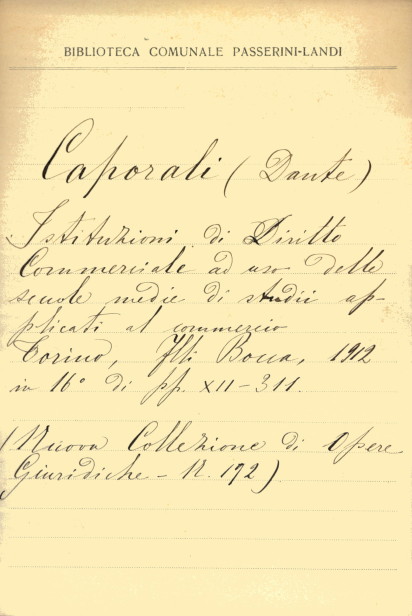 BIBLIOTECA COMUNALE PASSERINI-LANDI
Caporali (Dante)
Istituzioni di Diritto
Commerciale ad uso delle
scuole medie di studii ap-
plicati al commercio
Torino, Flli Bocca, 1912
in 16° di pp. XII-311.
(Nuova Collezione di Opere
Giuridiche - N. 192)